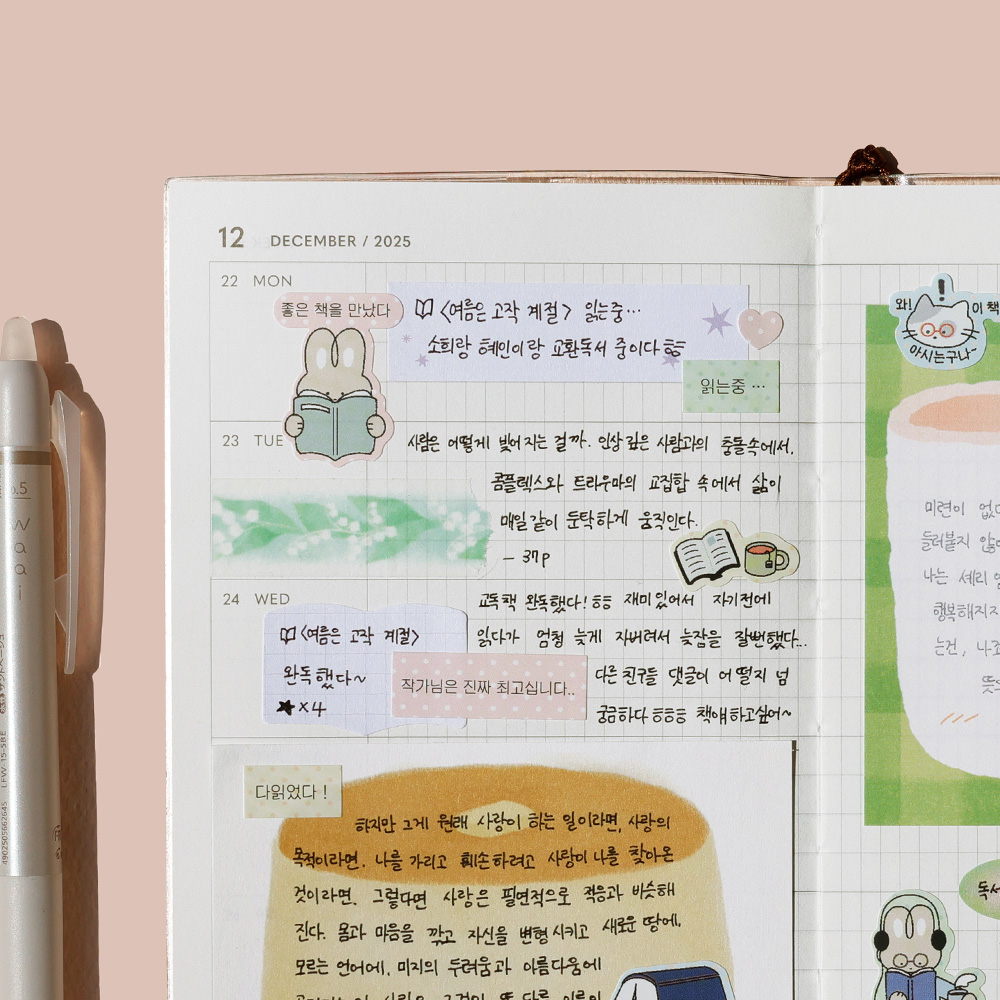 12 DECEMBER / 2025
22 MON
좋은 책을 만났다
<여름은 고작 계절> 읽는중…
소희랑 혜인이랑 교환독서 중이다 ㅎㅎ
읽는중 …
23 TUE
사람은 어떻게 빚어지는 걸까. 인상 깊은 사람과의 충돌속에서,
콤플렉스와 트라우마의 교집합 속에서 삶이
매일같이 둔탁하게 움직인다.
- 37p
24 WED
<여름은 고작 계절>
완독했다~
★×4
작가님은 진짜 최고십니다..
교독책 완독했다! ㅎㅎ 재미있어서 자기전에
읽다가 엄청 늦게 자버려서 늦잠을 잘뻔했다...
다른친구들 댓글이 어떨지 넘
궁금하다 ㅎㅎㅎ 책얘하고싶어~
다읽었다 !
하지만 그게 원래 사랑이 하는 일이라면, 사랑의
목적이라면. 나를 가리고 훼손하려고 사랑이 나를 찾아온
것이라면. 그렇다면 사랑은 필연적으로 적응과 비슷해
진다. 몸과 마음을 깎고 자신을 변형시키고 새로운 땅에,
모르는 언어에, 미지의 두려움과 아름다움에
와! 이 책
아시는구나~
미련이 없
들러붙지 않
나는 세리
행복해지지
는건, 나
뜻
독서
0.5
4902505662645 LFW-15-SBE